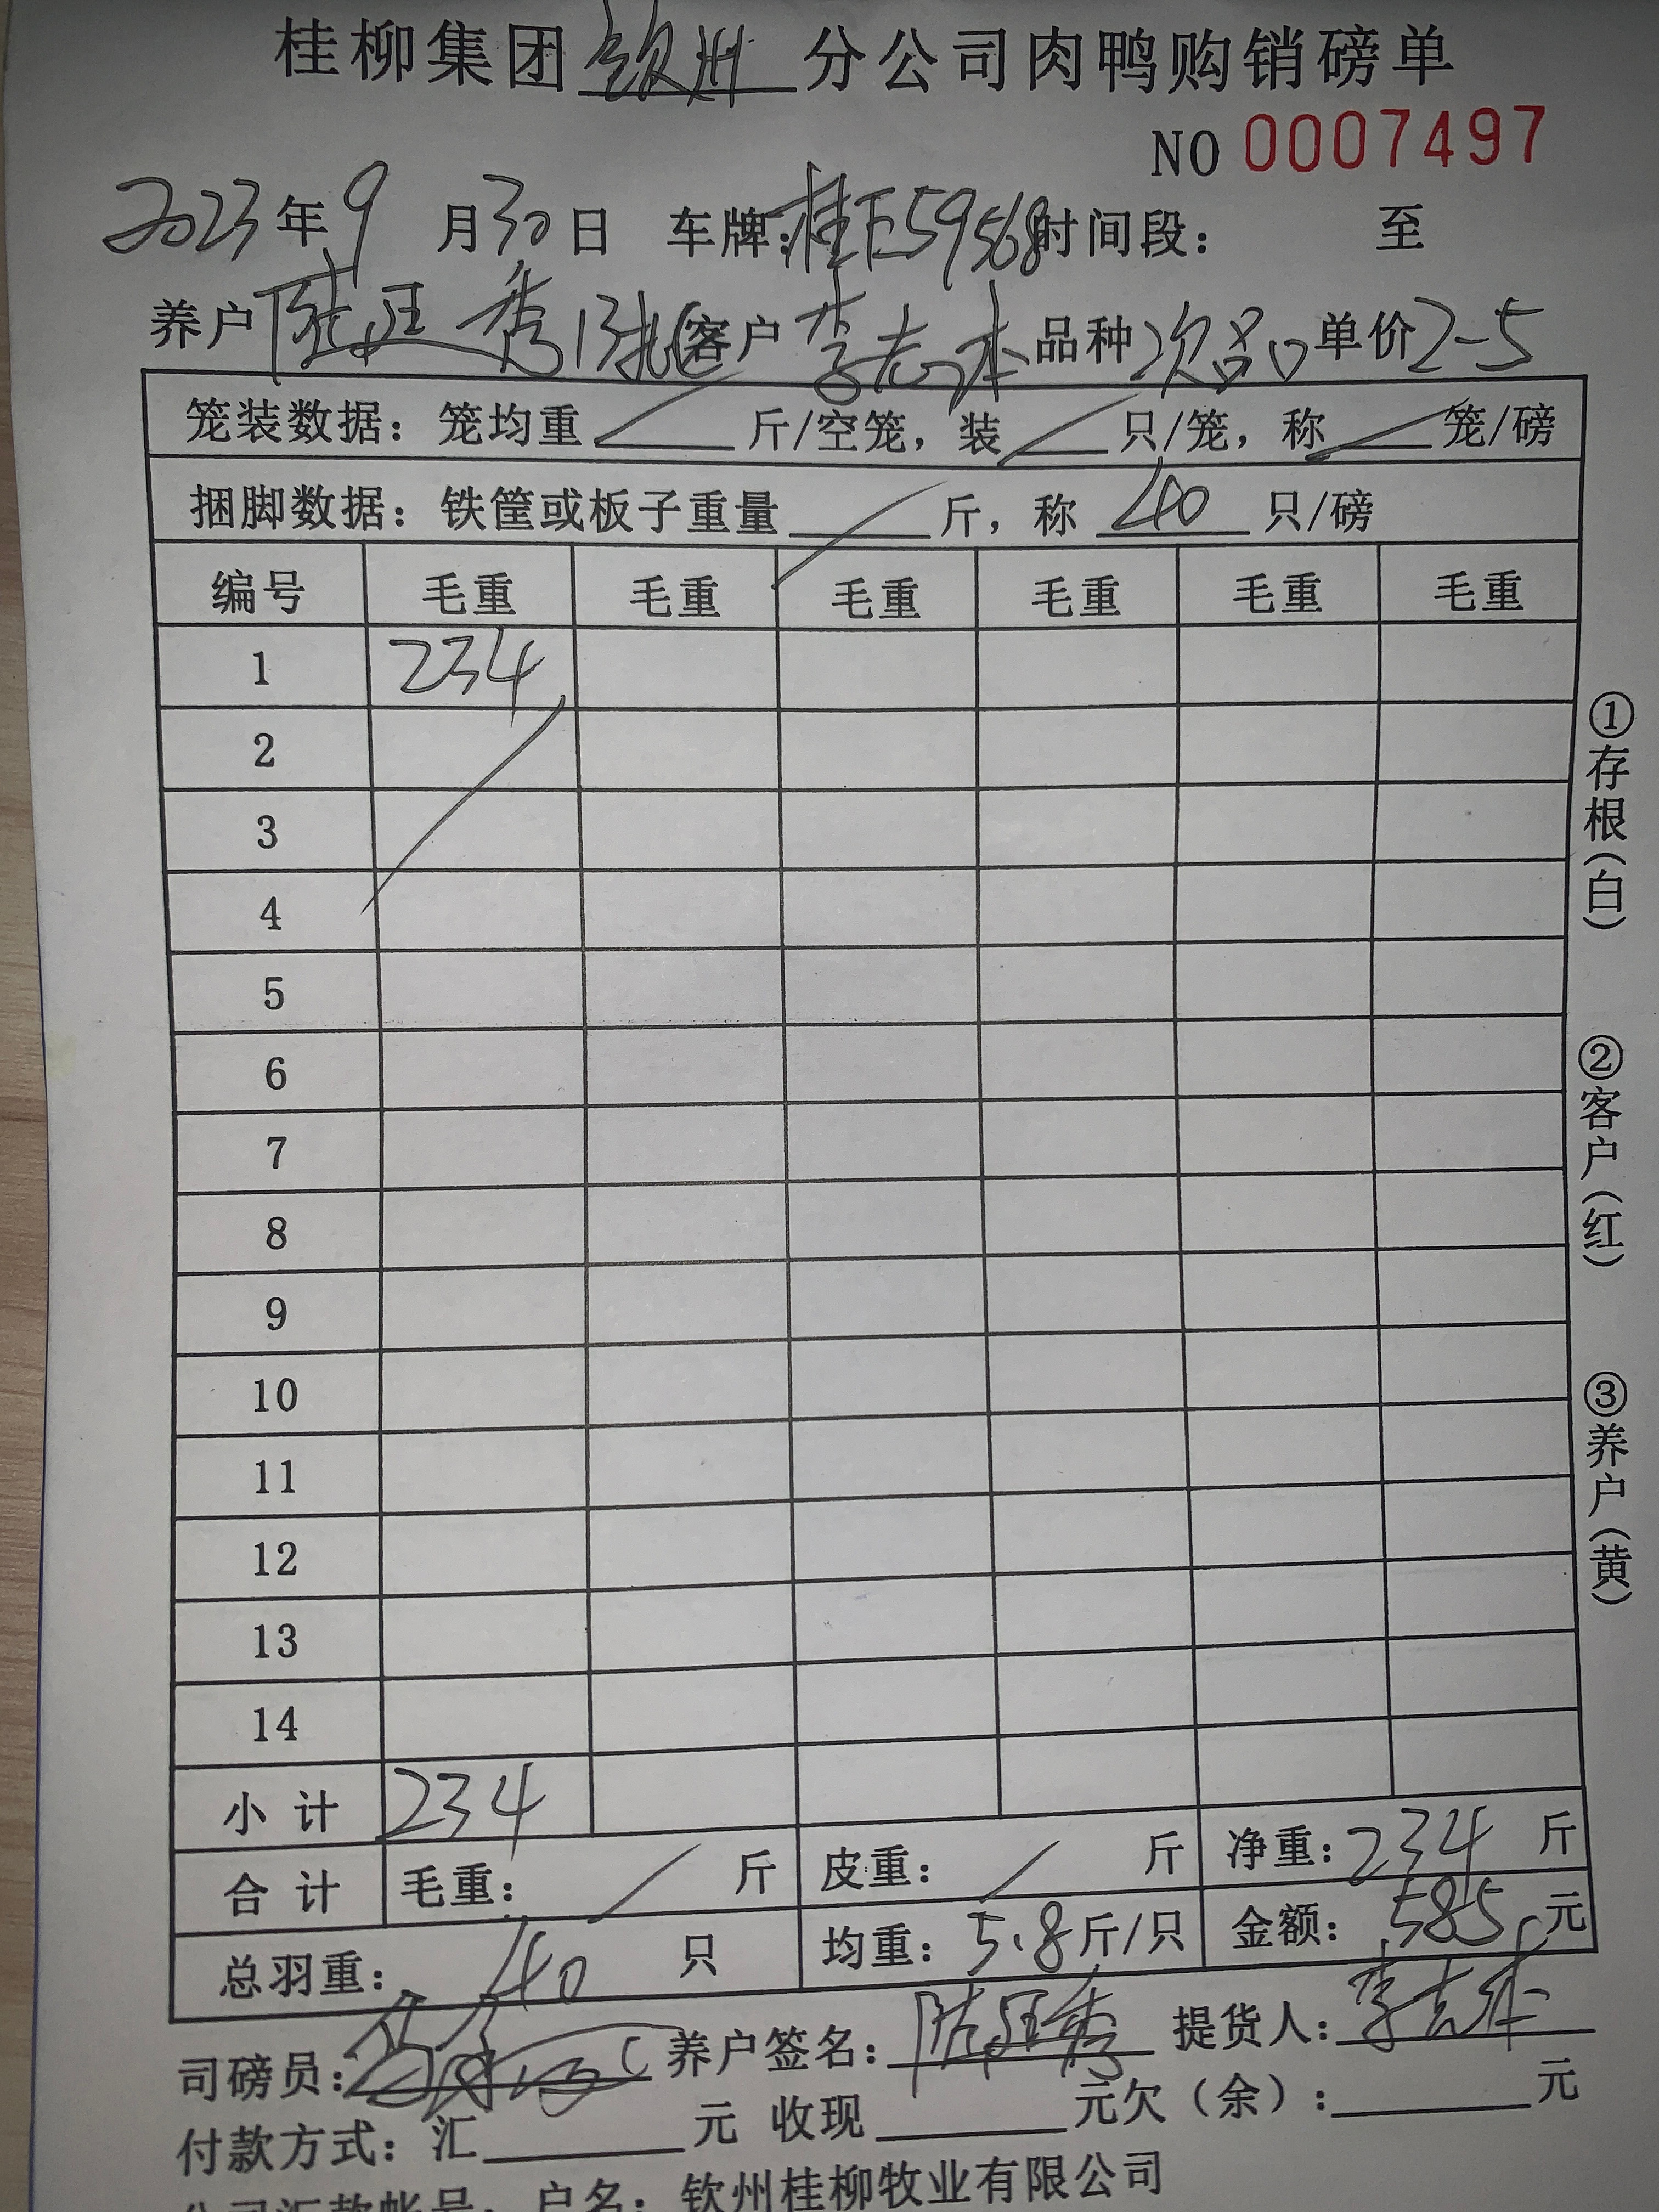 桂柳集团钦州分公司肉鸭购销磅单
NO 0007497
2023年9月30日 车牌:桂E59568时间段: 至
养户陆廷秀13批客户李志 品种次品 单价2-5
笼装数据:笼均重 斤/空笼,装 只/笼,称 笼/磅
捆脚数据:铁筐或板子重量 斤,称 40 只/磅
编号 毛重 毛重 毛重 毛重 毛重 毛重
1 234
2
3
4
5
6
7
8
9
10
11
12
13
14
小计 234
合计 毛重: 斤 皮重: 斤 净重:234 斤
总羽重: 40 只 均重:5.8斤/只 金额:585元
司磅员: 养户签名:陆廷秀 提货人:李志
付款方式:汇 元 收现 元欠(余): 元
公司汇款帐号:户名:钦州桂柳牧业有限公司
①存根(白)
②客户(红)
③养户(黄)